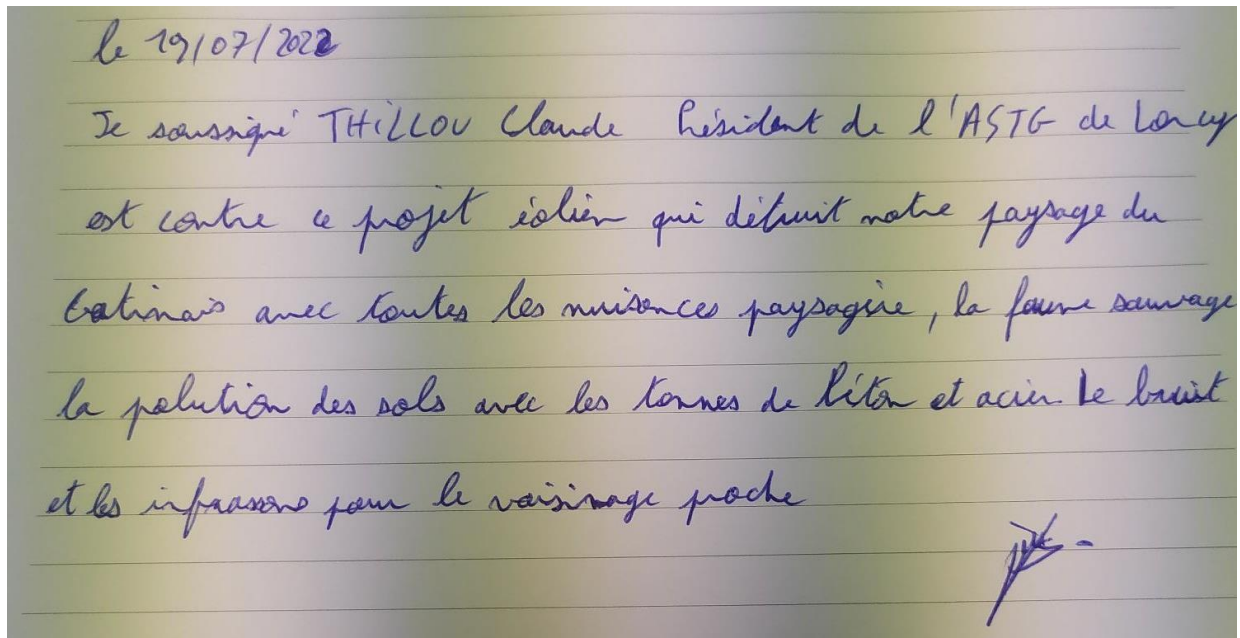 le 19/07/2022
Je soussigné THiLLOU Claude Président de l'ASTG de Lorcy
est contre ce projet éolien qui détruit notre paysage du
Gatinais avec toutes les nuisences paysagère, la faune sauvage
la polution des sols avec les tonnes de béton et acier. Le bruit
et les infrasons pour le voisinage proche